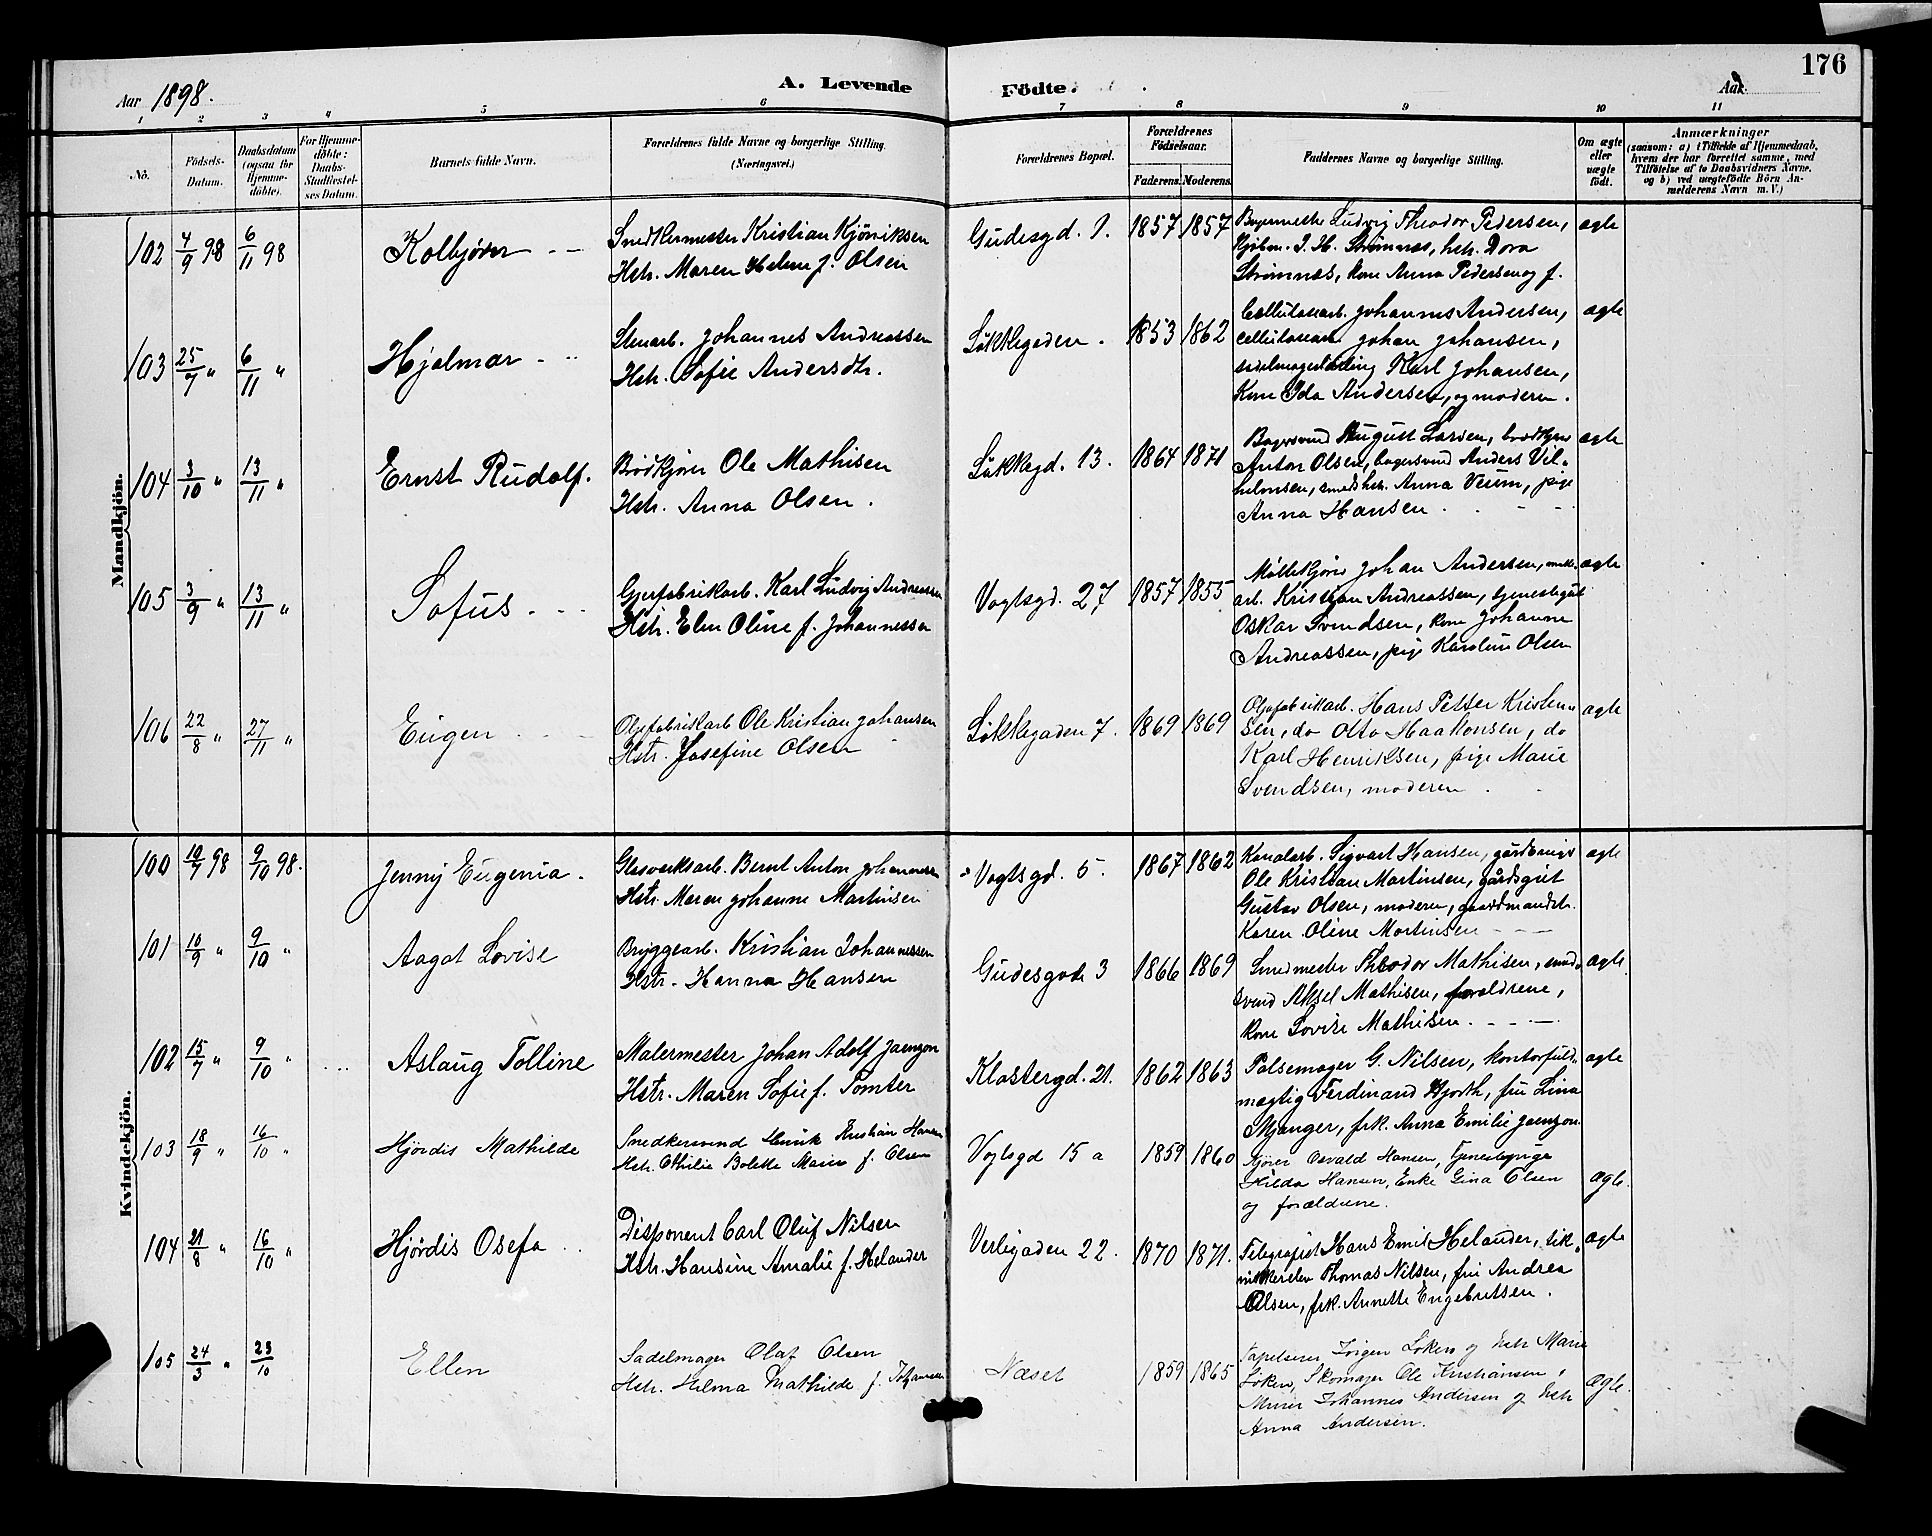 176
Aar 1898.
A. Levende
Födte.
Aar
1 2 3 4 5 6 7 8 9 10 11
No.
Födsels-
Datum.
Daabsdatum
(ogsaa for
Hjemme-
döbte).
For Hjemme-
döbte:
Daabs-
Stadfæstel-
ses Datum.
Barnets fulde Navn.
Forældrenes fulde Navne og borgerlige Stilling
(Næringsvei.)
Forældrenes Bopæl.
Forældrenes
Födselsaar.
Faderens. Moderens.
Faddernes Navne og borgerlige Stilling.
Om ægte
eller
uægte
födt.
Anmærkninger
(saasom: a) i Tilfælde af Hjemmedaab,
hvem der har forrettet samme, med
Tilföielse af to Daabsvidners Navne,
og b) ved uægtefödte Börn An-
melderens Navn m. V.)
Mandkjön.
102 4/9 98 6/11 98 Kolbjörn
Snedkermester Kristian Kjöniksen
Hstr. Maren Helene f. Olsen
Gudesgd. 1. 1857 1857
Bagermester Ludvig Theodor Pedersen,
Kjöbm. J. H. Strömnæs, hstr. Dora
Strömnæs, kone Anna Pedersen og f.
ægte
103 25/7 " 6/11 " Hjalmar
Stenarb. Johannes Andreassen
Hstr. Sofie Andersdtr.
Løkkegaden. 1853 1862
Cellulosearb. Johannes Andersen,
cellulosearb. Johan Johansen,
sadelmagerlærling Karl Johansen,
Kone Ida Andersen, og moderen.
ægte
104 3/10 " 13/11 " Ernst Rudolf.
Brödkjörer Ole Mathisen
Hstr. Anna Olsen.
Løkkegd. 13. 1864 1871
Bagersvend August Larsen, brödkjører
Anton Olsen, bagersvend Anders Vil-
helmsen, smedhstr. Anna Veum, pige
Anna Hansen.
ægte
105 3/9 " 13/11 " Sofus
Gjærfabrikarb. Karl Ludvig Andreassen
Hstr. Elen Oline f. Johannessen
Vogtsgd. 27 1857 1855
Møllekjörer Johan Andersen, mølle-
arb. Kristian Andreassen, tjenestegut
Oskar Svendsen, kone Johanne
Andreassen, pige Karoline Olsen
ægte
106 22/8 " 27/11 " Eugen
Oljefabrikarb Ole Kristian Johansen
Hstr. Josefine Olsen
Løkkegaden 7. 1869 1869
Oljefabrikarb. Hans Petter Kristen-
sen, do Otto Haakonsen, do
Karl Henriksen, pige Marie
Svendsen, moderen.
ægte
Kvindekjön.
100 10/7 98 9/10 98. Jenny Eugenia.
Glasverksarb. Bernt Anton Johannessen
Hstr. Maren Johanne Martinsen
Vogtsgd. 5. 1867 1862
Kanalarb. Sigvart Hansen, gårdbruger
Ole Kristian Martinsen, gårdsgut
Gustav Olsen, moderen, gaardmandstr.
Karen Oline Martinsen
ægte
101 10/9 " 9/10 " Aagot Lovise
Bryggearb. Kristian Johannessen
Hstr. Hanna Hansen
Gudesgade 3 1866 1869
Smedmester Theodor Mathisen, smed-
svend Aksel Mathisen, forældrene,
kone Lovise Mathisen.
ægte.
102 15/7 " 9/10 " Aslaug Tolline
Malermester Johan Adolf Jaenzon
Hstr. Maren Sofie f. Tomter
Klostergd. 21. 1862 1863
Pølsemager G. Nilsen, kontorfuld-
mægtig Ferdinand Hjorth, fru Lina
Manger, frk. Anna Emilie Jaenzon
ægte
103 18/9 " 16/10 " Hjördis Mathilde
Snedkersvend Henrik Kristian Hansen
Hstr. Othilie Bolette Marie f. Olsen
Vogtsgd 15 a 1859 1860
Kjører Osvald Hansen, Tjenestepige
Hilda Hansen, Enke Gina Olsen
og forældrene.
Ægte.
104 21/8 " 16/10 " Hjördis Osefa
Disponent Carl Oluf Nilsen
Hstr. Hansine Amalie f. Helander
Verligaden 22. 1870 1871.
Telegrafist Hans Emil Helander, tek-
nikkerelev Thomas Nilsen, fru Andrea
Olsen, frk. Annette Engebretsen.
ægte
105 24/3 " 23/10 Ellen
Sadelmager Olaf Olsen
Hstr. Hilma Mathilde f. Johansen
Næset 1859 1865
Tapetserer Jörgen Loken og hstr Marie
Loken, Skomager Ole Kristiansen,
Murer Johannes Andersen og hstr
Anna Andersen.
Ægte.